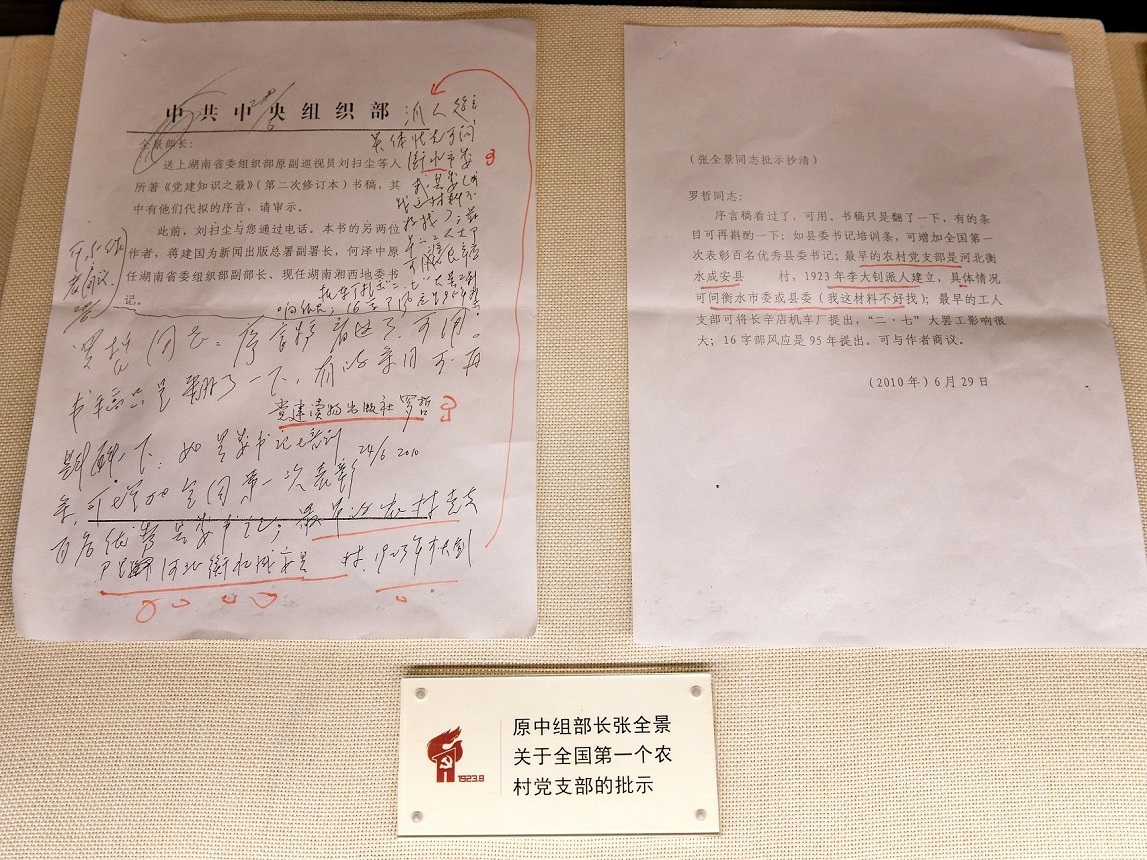 中共中央组织部
全景部长:
送上湖南省委组织部原副巡视员刘扫尘等人
所著《党建知识之最》(第二次修订本)书稿,其
中有他们代拟的序言,请审示。
此前,刘扫尘与您通过电话。本书的另两位
作者,蒋建国为新闻出版总署副署长,何泽中原
任湖南省委组织部副部长、现任湖南湘西地委书
记。
党建读物出版社 罗哲
24/6 2010
罗哲同志:序言稿看过了,可用。
书稿只是翻了一下,有的条目可再
斟酌一下:如县委书记培训
条,可增加全国第一次表彰
百名优秀县委书记;最早的农村党支
部是河北衡水成安县 村,1923年李大钊
派人建立
具体情况可问
衡水市委
或县委(我
这材料不
好找);最
(张全景同志批示抄清)
罗哲同志:
序言稿看过了,可用。书稿只是翻了一下,有的条
目可再斟酌一下:如县委书记培训条,可增加全国第一
次表彰百名优秀县委书记;最早的农村党支部是河北衡
水成安县 村,1923年李大钊派人建立,具体情况
可问衡水市委或县委(我这材料不好找);最早的工人
支部可将长辛店机车厂提出,“二·七”大罢工影响很
大;16字部风应是95年提出。可与作者商议。
(2010年)6月29日
1923.8
原中组部长张全景
关于全国第一个农
村党支部的批示